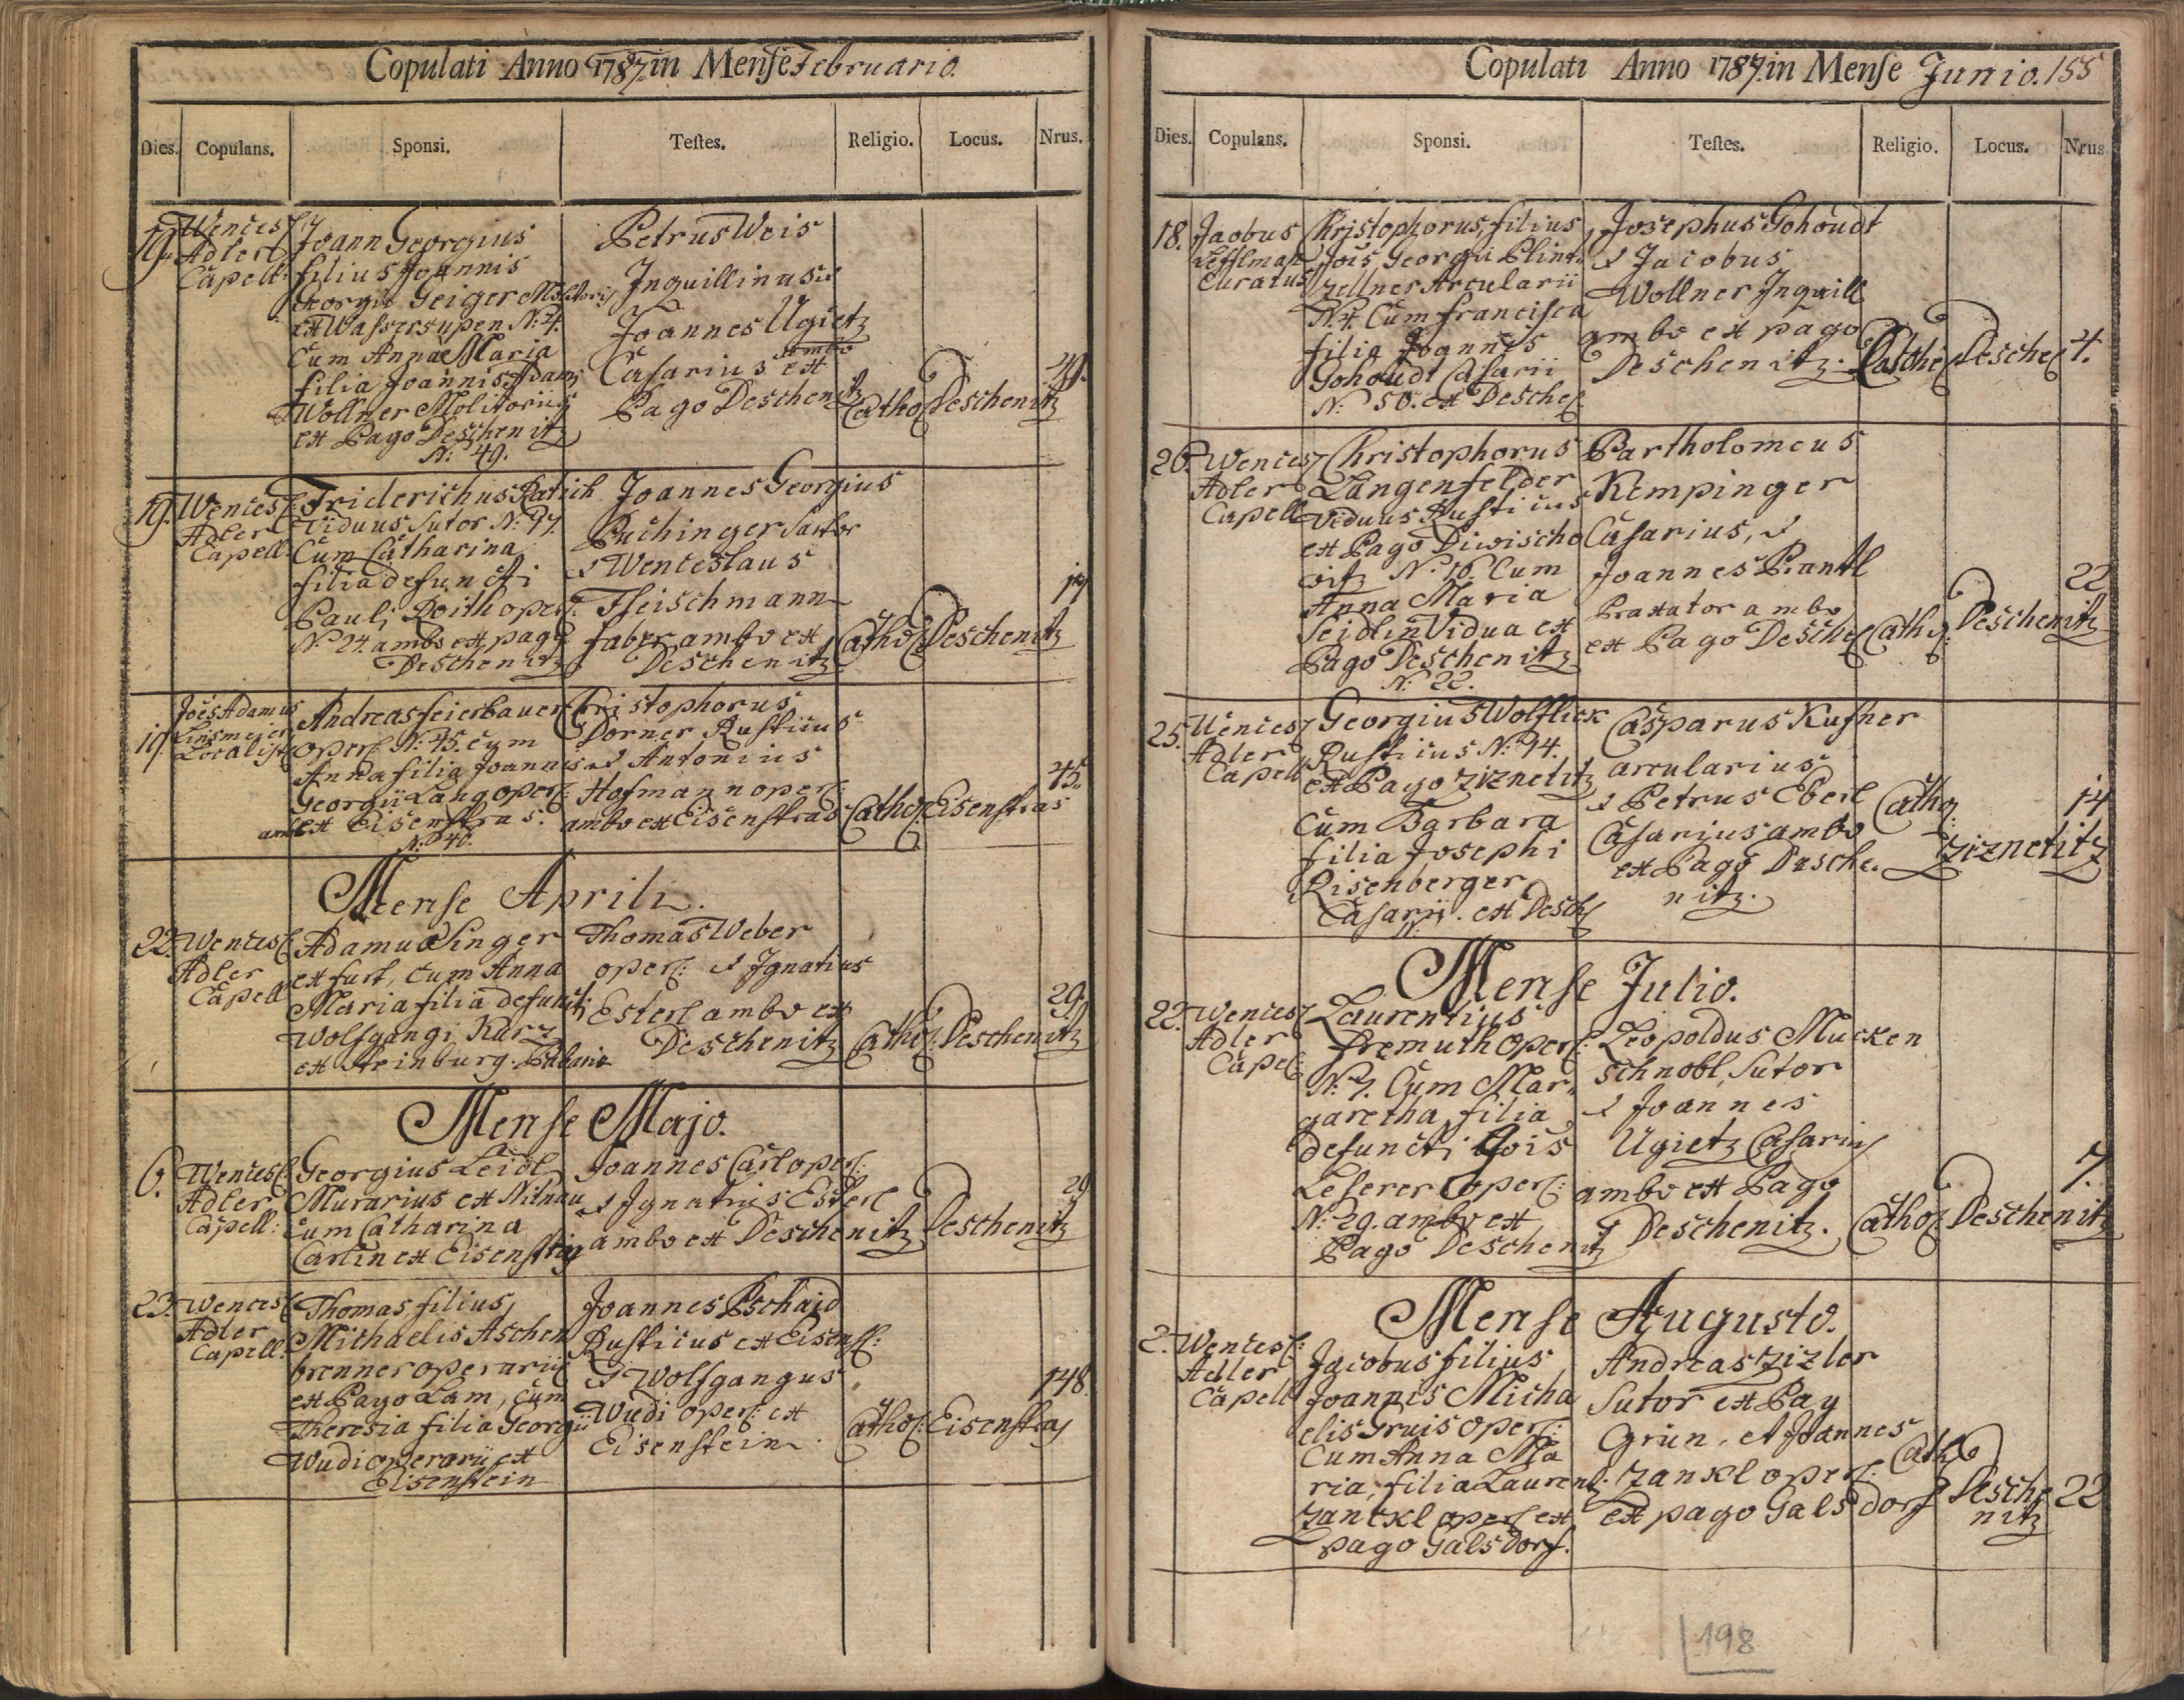 Copulati Anno 1787. in Mense Februario.
Dies. Copulans. Sponsi. Testes. Religio. Locus. Nrus.
19. Wencesl
Adler
Capell:
Joann Georgius
filius Joannis
Georgii Geiger Molitoris
ex Wassersupen N: 4.
Cum Anna Maria
filia Joannis Adami
Wollner Molitoris
ex Pago Deschenitz
N: 49.
Petrus Weis
Inquillinus et
Joannes Ugietz
ambo
Casarius ex
Pago Deschenitz
Cathol
Deschenitz
49.
19. Wencesl:
Adler
Capell:
Friderichus Ratich
Viduus Sutor N: 97.
Cum Catharina
filia defuncti
Pauli Roith oper:
N: 24. ambo ex pago
Deschenitz
Joannes Georgius
Puchinger Sartor
et Wenceslaus
Fleischmann
faber ambo ex
Deschenitz
Cathol:
Deschenitz
19. Joes Adamus
Localista
Andreas Feierbauer
oper: N: 45. cum
Anna filia Joannis
Georgii Lang oper:
ambo ex Eisenstras:
N: 40.
Christophorus
Dorner Rusticus
et Antonius
Hofmann oper:
ambo ex Eisenstras
Cathol:
Eisenstras
45.
Mense Aprili.
22. Wencesl
Adler
Capell
Adamus Singer
ex furt, cum Anna
Maria filia defuncti
Wolfgangi Karz
ex Steinburg.
Thomas Weber
oper: et Ignatius
Esterl ambo ex
Deschenitz
Cathol:
Deschenitz
29.
Mense Majo.
6. Wencesl:
Adler
Capell:
Georgius Leidl
Murarius ex Milnau
Cum Catharina
Carlin ex Eisenstras
Joannes Carl oper:
et Ignatius Esterl
ambo ex Deschenitz
Deschenitz
29
23. Wencesl
Adler
Capell.
Thomas filius
Michaelis Aschen
brenner operarii
ex Pago Lam, cum
Theresia filia Georgii
Wudi operarii ex
Eisenstein
Joannes Pschaid
Rusticus ex Eisenst:
et Wolfgangus
Wudi oper: ex
Eisenstein.
Cathol:
Eisenstras
148.
Copulati Anno 1787. in Mense Junio. 155
Dies. Copulans. Sponsi. Testes. Religio. Locus. Nrus
18. Jacobus
Curatus
Christophorus, filius
Jois Georgii
Zellner Arcularii
N: 4. Cum Francisca
filia Joannis
Gohoudt Casarii
N: 50. ex Desche
Josephus Gohoudt
et Jacobus
Wollner Inquill
ambo ex pago
Deschenitz.
Desche
4.
20. Wencesl
Adler
Capell
Christophorus
Langenfelder
Viduus Rusticus
ex Pago Diwischo
witz N: 16. Cum
Anna Maria
Seidlin Vidua ex
Pago Deschenitz
N: 22.
Bartholomeus
Kempinger
Casarius, et
Joannes Prantl
Braxator ambo
ex Pago Desche
Cathol:
Deschenitz
22
25. Wencesl
Adler
Capell
Georgius Wolflick
Rusticus N: 14.
ex Pago Ziznetitz
Cum Barbara
filia Josephi
Eisenberger
Casarii. ex Desch
Casparus Kufner
arcularius
et Petrus Eberl
Casarius ambo
ex Pago Desche.
nitz.
Cathol:
Ziznetitz
14
Mense Julio.
22. Wencesl
Adler
Capel
Laurentius
Fremuth oper:
N: 7. Cum Mar,,
garetha filia
defuncti Jois
Leserer oper:
N: 29. ambo ex
Pago Deschenitz
Leopoldus Mucken
schnobl, Sutor
et Joannes
Ugietz Casarius
ambo ex Pago
Deschenitz.
Cathol:
Deschenitz
7.
Mense Augusto.
2. Wencesl:
Adler
Capell
Jacobus filius
Joannis Micha
elis Gruis oper:
Cum Anna Ma
ria, filia Laurenz:
Zanckl oper: ex
pago Galsdorf.
Andreas Zizler
Sutor ex Pag
Grün, et Joannes
Zankl oper:
ex pago Galsdorf
Cathol
Desche
nitz
22
198